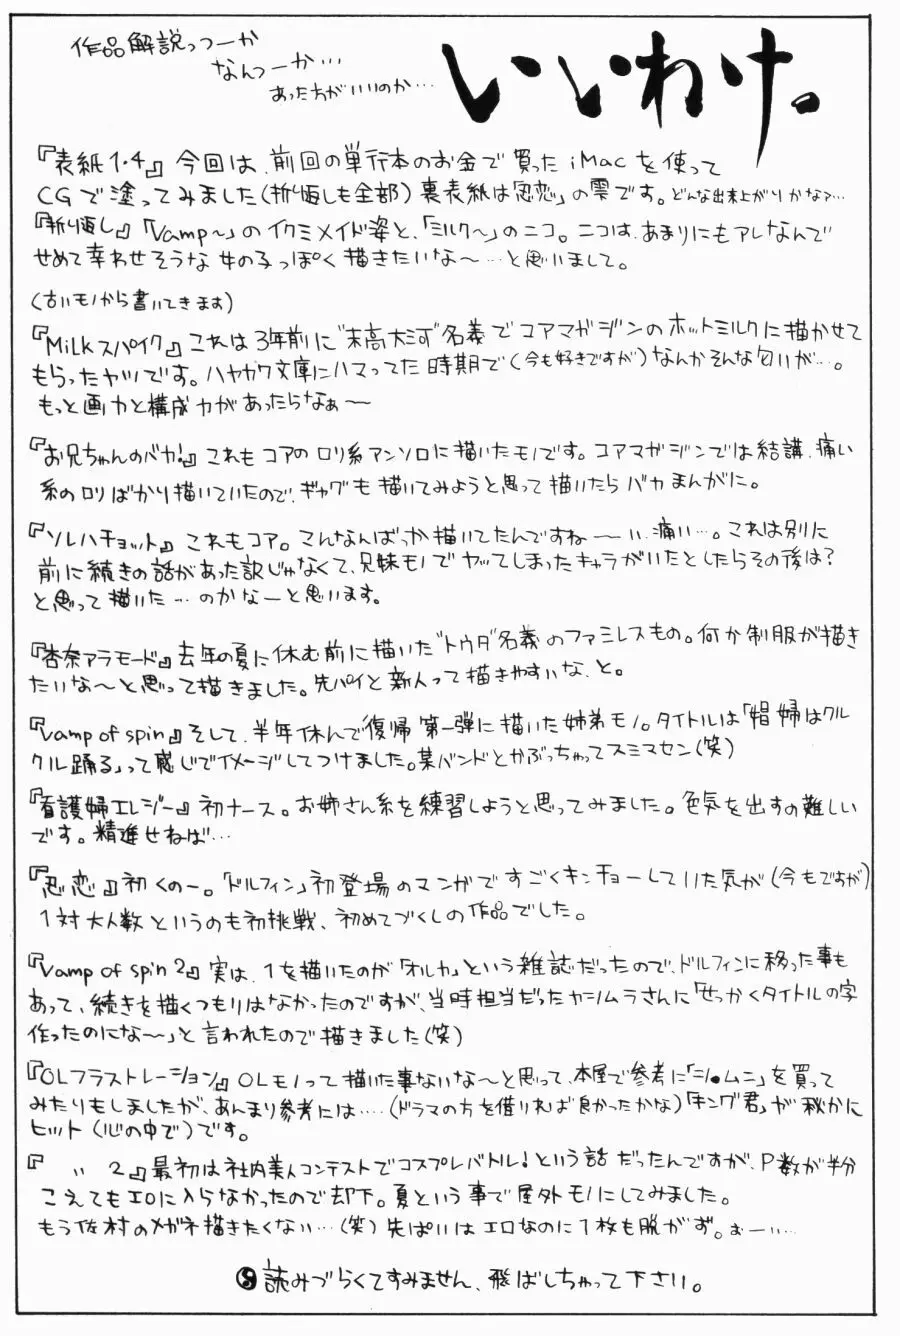 作品解説っつーか
なんつーか…
あった方がいいのか…
いいわけ。
『表紙1・4』今回は、前回の単行本のお金で買ったiMacを使って
CGで塗ってみました(折返しも全部)裏表紙は「忍恋」の雫です。どんな出来上がりかなァ…
『折り返し』「Vamp〜」のイクミメイド姿と、「ミルク〜」のニコ。ニコは、あまりにもアレなんで
せめて幸わせそうな女の子っぽく描きたいな〜…と思いまして。
(古いモノから書いてきます)
『Milkスパイク』これは3年前に"末高大河"名義でコアマガジンのホットミルクに描かせて
もらったヤツです。ハヤカワ文庫にハマってた時期で(今も好きですが)なんかそんな匂いが…。
もっと画力と構成力があったらなぁ〜
『お兄ちゃんのバカ!』これもコアのロリ系アンソロに描いたモノです。コアマガジンでは結講、痛い
系のロリばかり描いていたので、ギャグも描いてみようと思って描いたらバカまんがに。
『ソレハチョット』これもコア。こんなんばっか描いてたんですね〜い、痛い…。これは別に
前に続きの話があった訳じゃなくて、兄妹モノでヤッてしまったキャラがいたとしたらその後は?
と思って描いた…のかなーと思います。
『杏奈アラモード』去年の夏に休む前に描いた"トウタ"名義のファミレスもの。何か制服が描き
たいな〜と思って描きました。先パイと新人って描きやすいな、と。
『Vamp of spin』そして、半年休んで復帰第一弾に描いた姉弟モノ。タイトルは「娼婦はクル
クル踊る」って感じでイメージしてつけました。某バンドとかぶっちゃってスミマセン(笑)
『看護婦エレジー』初ナース。お姉さん系を練習しようと思ってみました。色気を出すの難しい
です。精進せねば…
『忍恋』初くのー。「ドルフィン」初登場のマンガですごくキンチョーしていた気が(今もですが)
1対大人数というのも初挑戦、初めてづくしの作品でした。
『Vamp of spin 2』実は、1を描いたのが「オルカ」という雑誌だったので、ドルフィンに移った事も
あって、続きを描くつもりはなかったのですが、当時担当だったヤシムラさんに「せっかくタイトルの字
作ったのにな〜」と言われたので描きました(笑)
『OLフラストレーション』OLモノって描いた事ないな〜と思って、本屋で参考に「ショ●ムニ」を買って
みたりもしましたが、あんまり参考には…(ドラマの方を借りれば良かったかな)「キング君」が秘かに
ヒット(心の中で)です。
『 〃 2』最初は社内美人コンテストでコスプレバトル!という話だったんですが、P数が半分
こえてもエロに入らなかったので却下。夏という事で屋外モノにしてみました。
もう佐村のメガネ描きたくない…(笑)先ぱいはエロなのに1枚も脱がず。ぉーい…
読みづらくてすみません、飛ばしちゃって下さい。